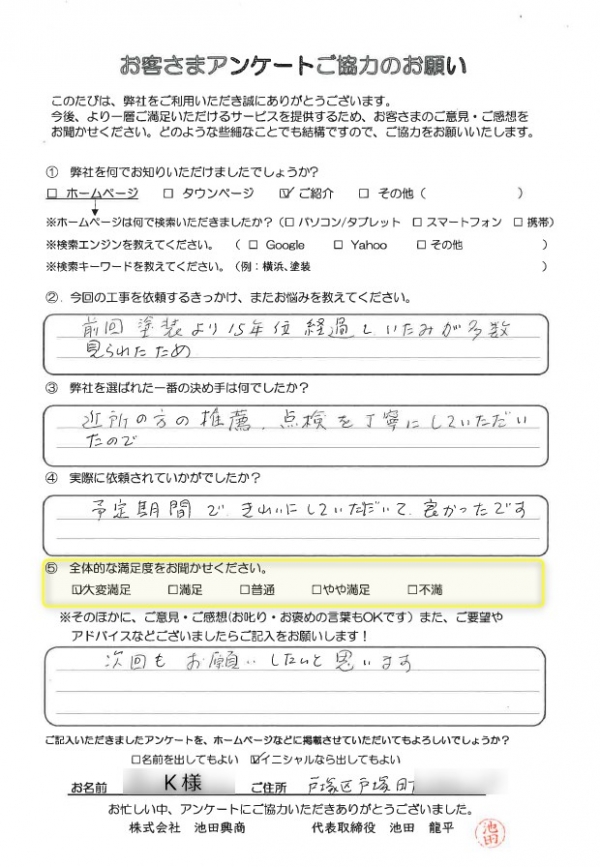 お客さまアンケートご協力のお願い
このたびは、弊社をご利用いただき誠にありがとうございます。
今後、より一層ご満足いただけるサービスを提供するため、お客さまのご意見・ご感想を
お聞かせください。どのような些細なことでも結構ですので、ご協力をお願いいたします。
① 弊社を何でお知りいただけましたでしょうか?
□ ホームページ □ タウンページ ☑ ご紹介 □ その他 ( )
※ホームページは何で検索いただきましたか? (□ パソコン/タブレット □ スマートフォン □ 携帯)
※検索エンジンを教えてください。 ( □ Google □ Yahoo □ その他 )
※検索キーワードを教えてください。(例：横浜、塗装 )
②．今回の工事を依頼するきっかけ、またお悩みを教えてください。
前回塗装より15年位経過しいたみが多数
見られたため
③ 弊社を選ばれた一番の決め手は何でしたか?
近所の方の推薦、点検を丁寧にしていただい
たので
④ 実際に依頼されていかがでしたか?
予定期間で、きれいにしていただいて、良かったです
⑤ 全体的な満足度をお聞かせください。
☑大変満足 □満足 □普通 □やや満足 □不満
※そのほかに、ご意見・ご感想(お叱り・お褒めの言葉もOKです）また、ご要望や
アドバイスなどございましたらご記入をお願いします！
次回もお願いしたいと思います
ご記入いただきましたアンケートを、ホームページなどに掲載させていただいてもよろしいでしょうか?
□名前を出してもよい ☑イニシャルなら出してもよい
お名前 K様 ご住所 戸塚区戸塚町
お忙しい中、アンケートにご協力いただきありがとうございました。
株式会社 池田興商 代表取締役 池田 龍平
池田